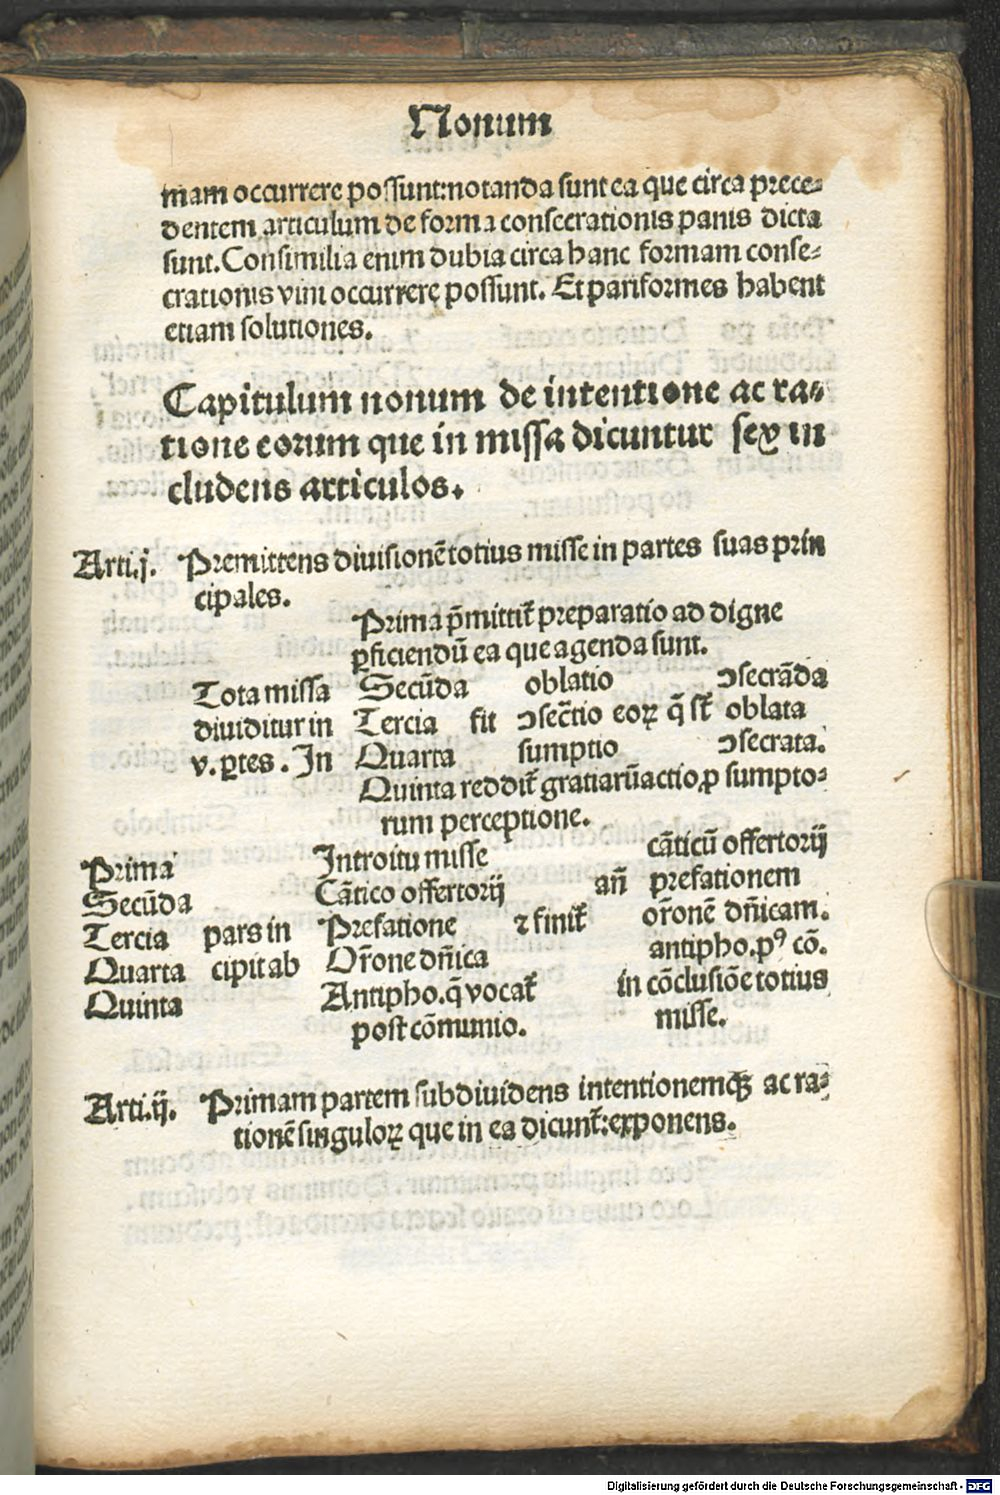 Nonum
mam occurrere possunt:notanda sunt ea que circa prece⸗
dentem articulum de forma consecrationis panis dicta
sunt. Consimilia enim dubia circa hanc formam conse⸗
crationis vini occurrere possunt. Et pariformes habent
etiam solutiones.
Capitulum nonum de intentione ac ra⸗
tione eorum que in missa dicuntur sex in
cludens articulos.
Arti.j. Premittens divisionē totius misse in partes suas prin
cipales.
Prima p̄mittit̄ preparatio ad digne
ꝑficiendū ea que agenda sunt.
Tota missa Secūda oblatio ↄsecrāda
diuiditur in Tercia fit ↄsec̄tio eoꝝ q̄ st̄ oblata
v. ꝑtes. In Quarta sumptio ↄsecrata.
Quinta reddit̄ gratiarū actio, ꝓ sumpto⸗
rum perceptione.
Prima Introitu misse cāticū offertorij
Secūda Cātico offertorij añ prefationem
Tercia pars in Prefatione ⁊ finit̄ or̄onē dn̄icam.
Quarta cipit ab Or̄one dn̄ica antipho.pꝰ cō.
Quinta Antipho. q̄ vocat̄ in cōclusiōe totius
post cōmunio. misse.
Arti.ij. Primam partem subdiuidens intentionemqꝫ ac ra⸗
tionē singuloꝝ que in ea dicunt̄: exponens.
Digitalisierung gefördert durch die Deutsche Forschungsgemeinschaft - DFG